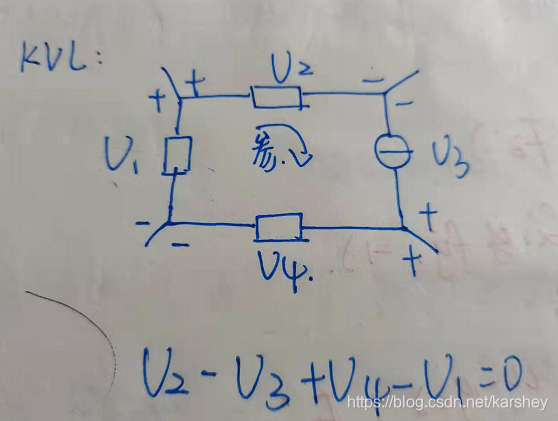 KVL:
+ + U₂ - -
U₁ 参. U₃
- - U₄. + +
U₂ - U₃ + U₄ - U₁ = 0
https://blog.csdn.net/karshey